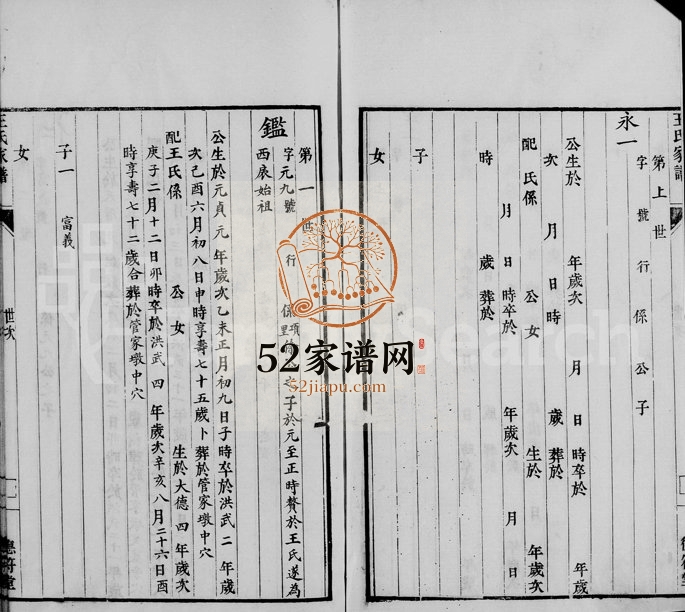 王氏家譜
第上世
永一
字 號 行 係 公 子
公生於 年歲次 月 日 時卒於 年歲
次 月 日時 歲 葬於
配 氏係 公女 生於 年歲次
月 日 時卒於 年歲次 月 日
時 歲 葬於
子
女
第一世
鑑
字元九號 行 係 之子於元至正時贅於王氏遂為
西展始祖
公生於元貞元年歲次乙未正月初九日子時卒於洪武二年歲
次己酉六月初八日申時享壽七十五歲卜葬於管家墩中穴
配王氏係 公女 生於大德四年歲次
庚子二月十二日卯時卒於洪武四年歲次辛亥八月二十六日酉
時享壽七十二歲合葬於管家墩中穴
子一 富義
女
王氏家譜
世次
德符堂
52家谱网
52jiapu.com